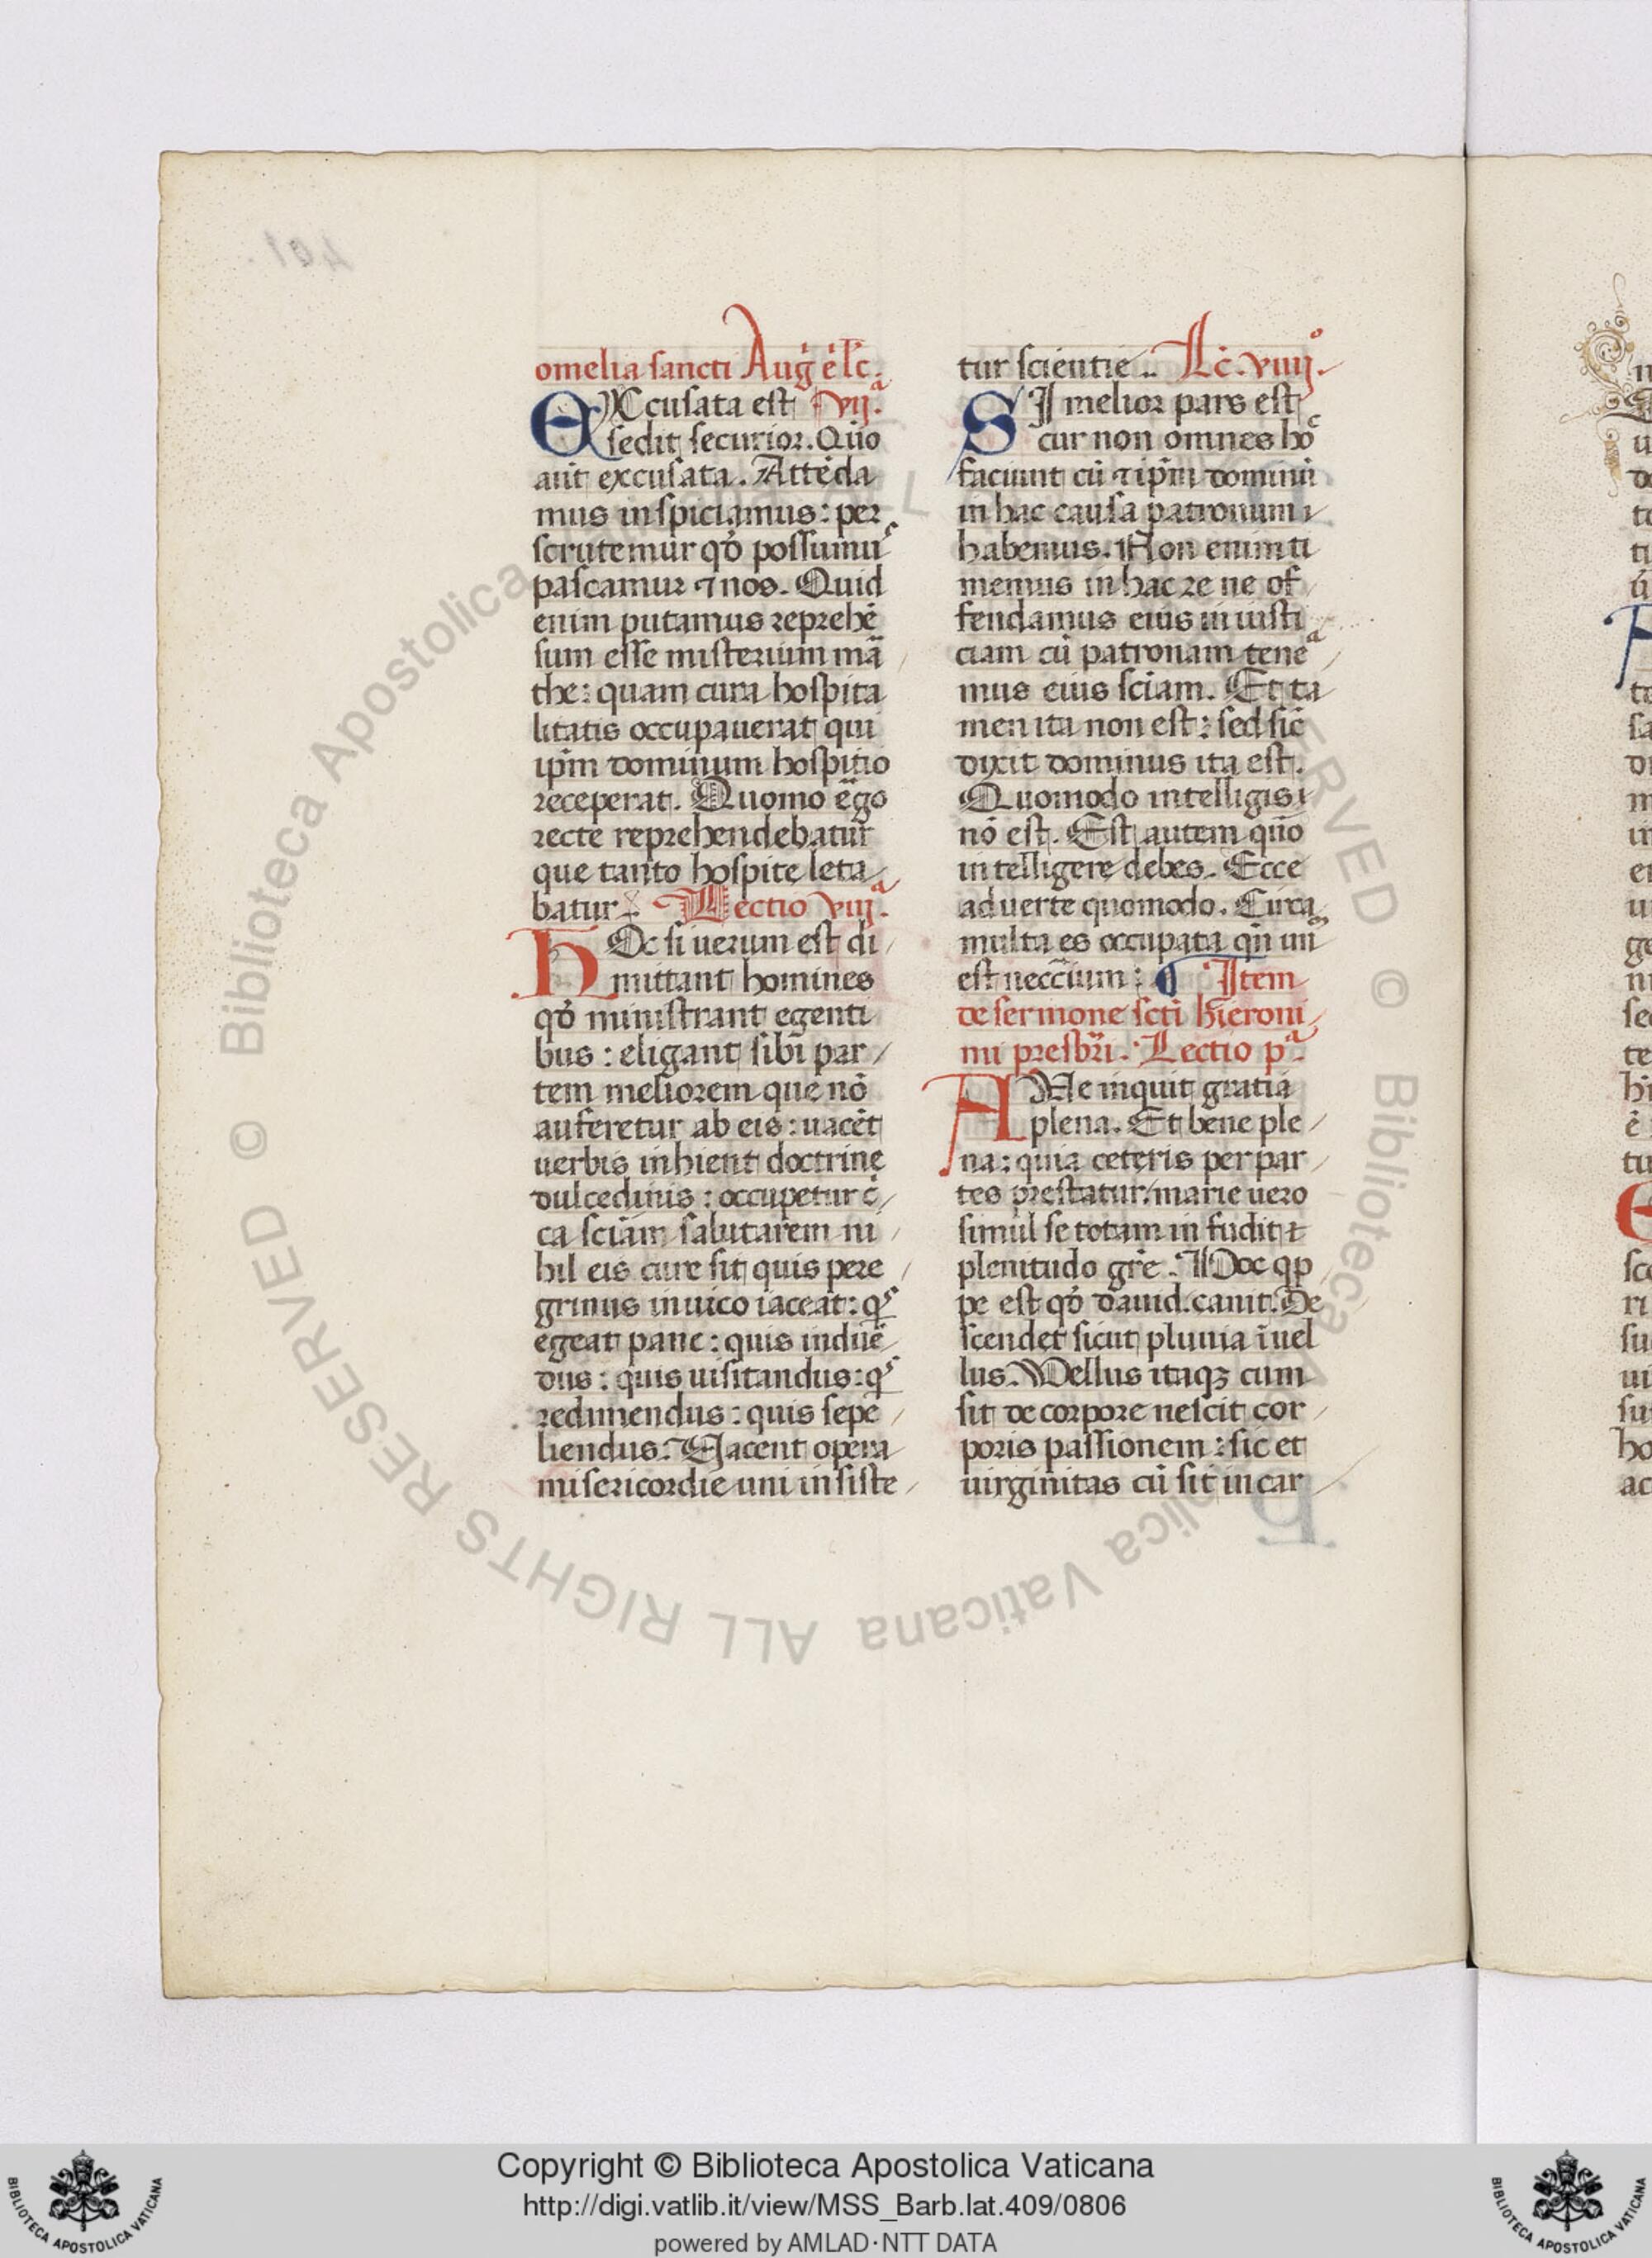 omelia sancti Aug̉ e lc̄.
EXcusata est vijª.
sedit securior. Quō
aūt excusata. Attēda
mus inspiciamus: per
scrutemur qđ possumus
pascamur ⁊ nos. Quid
enim putamus reprehē
sum esse misterium mā
the: quam cura hospita
litatis occupauerat qui
ip̄m dominum hospitio
receperat. Quomo ergo
recte reprehendebatur
que tanto hospite leta
batur. Lectio viijª.
HOc si uerum est di
mittant homines
qđ ministrant egenti
bus: eligant sibi par
tem meliorem que nō
auferetur ab eis: uacēt
uerbis inhient doctrine
dulcedinis: occupetur c̄
ca sciām salutarem ni
hil eis cure sit quis pere
grinus in uico iaceat: qs
egeat pane: quis induē
dus: quis uisitandus: qs
redimendus: quis sepe
liendus. Uacent opera
misericordie uni insiste
tur scientie. Lc̄. viiijº.
SI melior pars est
cur non omnes hoc
faciunt cū ⁊ ip̄m dominū
in hac causa patronum
habemus. Non enim ti
memus in hac re ne of
fendamus eius in iusti
ciam cū patronam tenea
mus eius sciam. Et ta
men ita non est: sed sic
dixit dominus ita est.
Quomodo intelligis
nō est. Est autem quō
intelligere debes. Ecce
aduerte quomodo. Circa
multa es occupata qn̄ unū
est necc̄ium: ¶ Item
de sermone scti Hieroni
mi presbr̄i. Lectio pª.
AUe inquit gratia
plena. Et bene ple
na: quia ceteris per par
tes prestatur: marie uero
simul se totam in fudit
plenitudo gr̄e. Hoc qp
pe est qđ dauid. canit. De
scendet sicut pluuia ī uel
lus. Vellus itaqꝫ cum
sit de corpore nescit cor
poris passionem: sic et
uirginitas cū sit in car
Copyright © Biblioteca Apostolica Vaticana
http://digi.vatlib.it/view/MSS_Barb.lat.409/0806
powered by AMLAD·NTT DATA
BIBLIOTECA APOSTOLICA VATICANA
BIBLIOTECA APOSTOLICA VATICANA
© Biblioteca Apostolica Vaticana ALL RIGHTS RESERVED